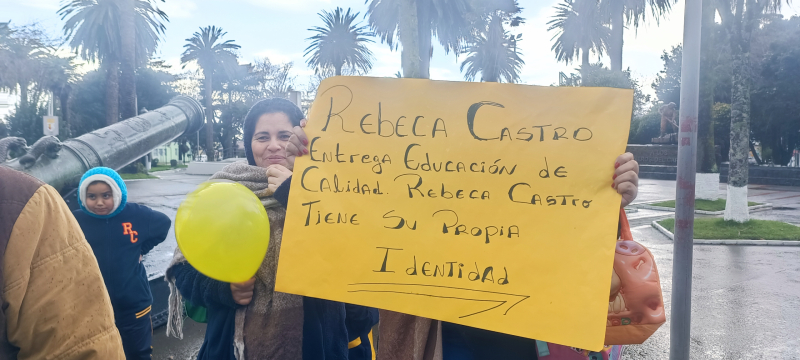 Rebeca Castro
Entrega Educación de
Calidad. Rebeca Castro
Tiene Su Propia
Identidad
RC